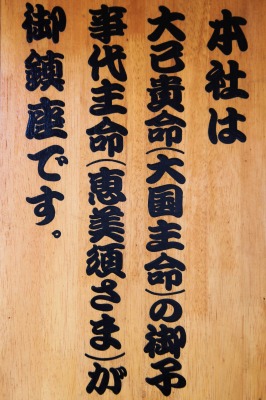 本社は
大己貴命(大国主命)の御子
事代主命(恵美須さま)が
御鎮座です。